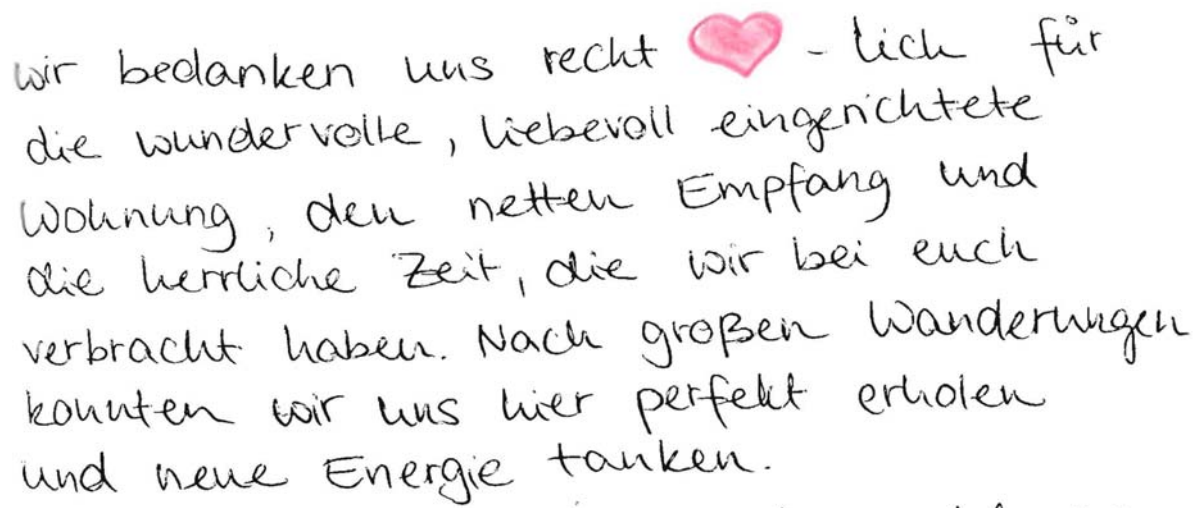 wir bedanken uns recht ❤-lich für
die wundervolle, liebevoll eingerichtete
Wohnung, den netten Empfang und
die herrliche Zeit, die wir bei euch
verbracht haben. Nach großen Wanderungen
konnten wir uns hier perfekt erholen
und neue Energie tanken.